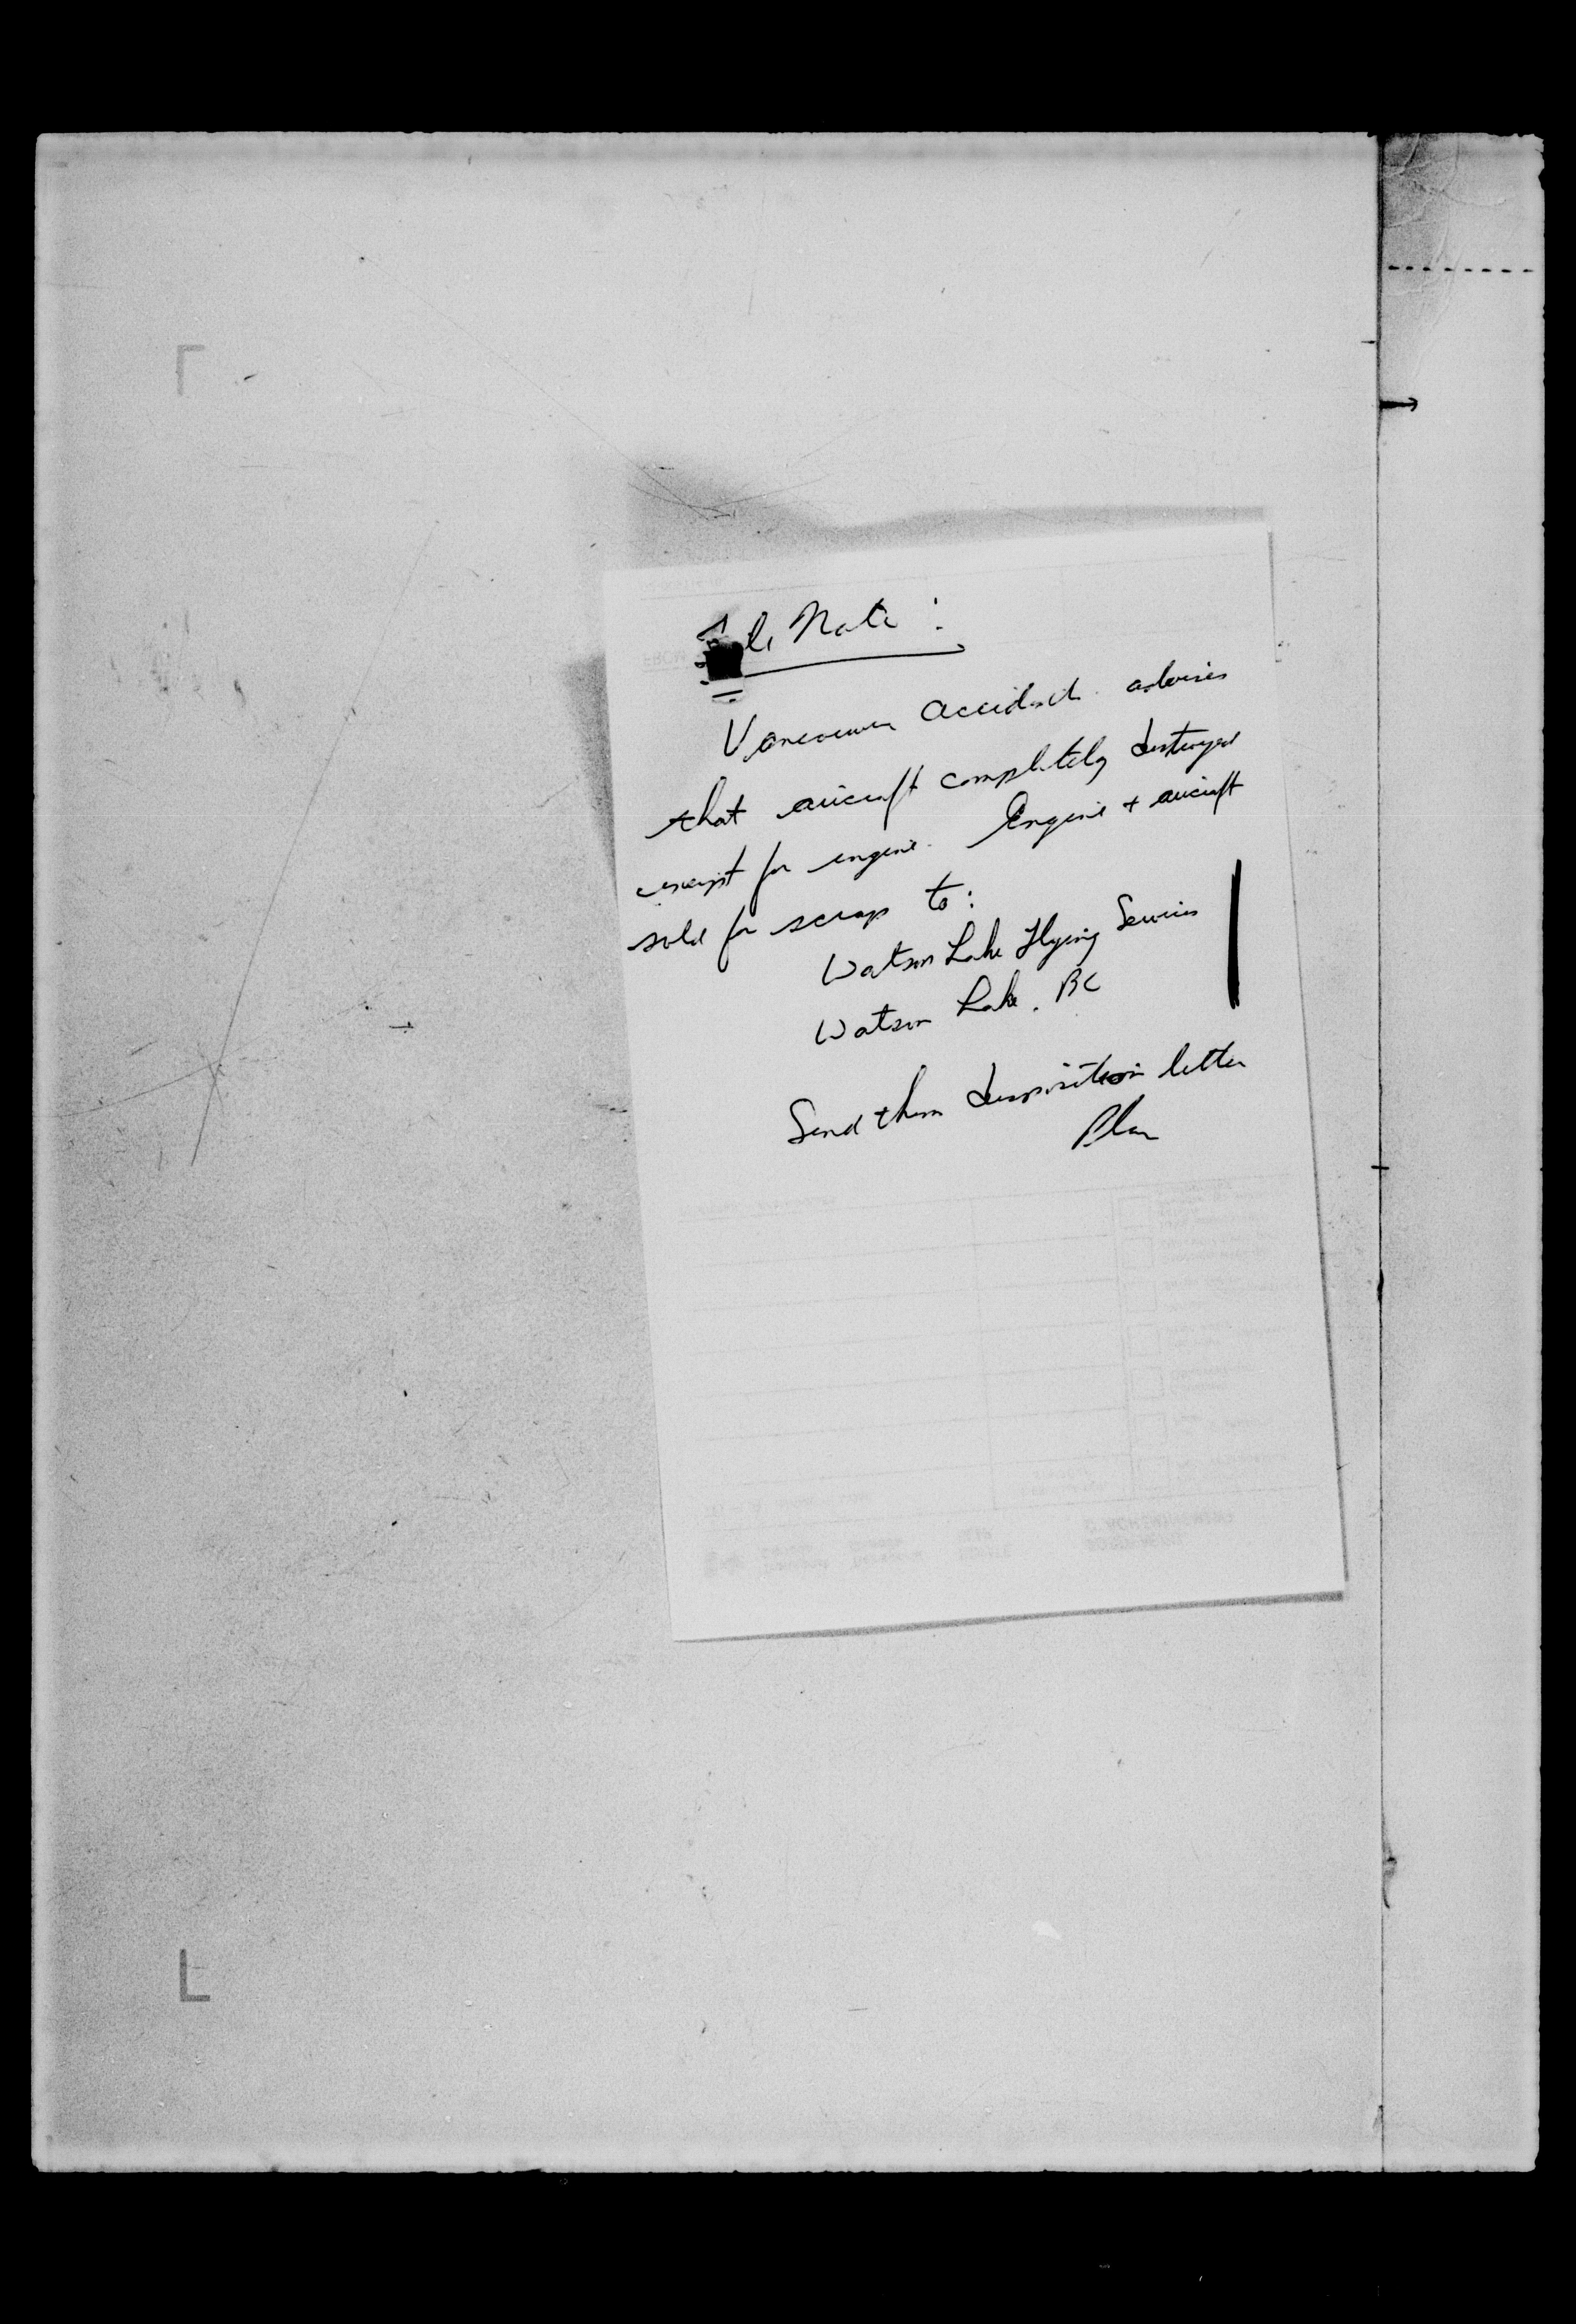 File Note:
Vancouver accident advises
that aircraft completely destroyed
except for engine. Engine + aircraft
sold for scrap to:
Watson Lake Flying Services
Watson Lake. BC
Send them disposition letter